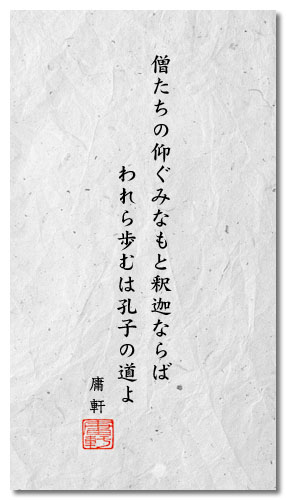 僧たちの仰ぐみなもと釈迦ならば
われら歩むは孔子の道よ
庸軒